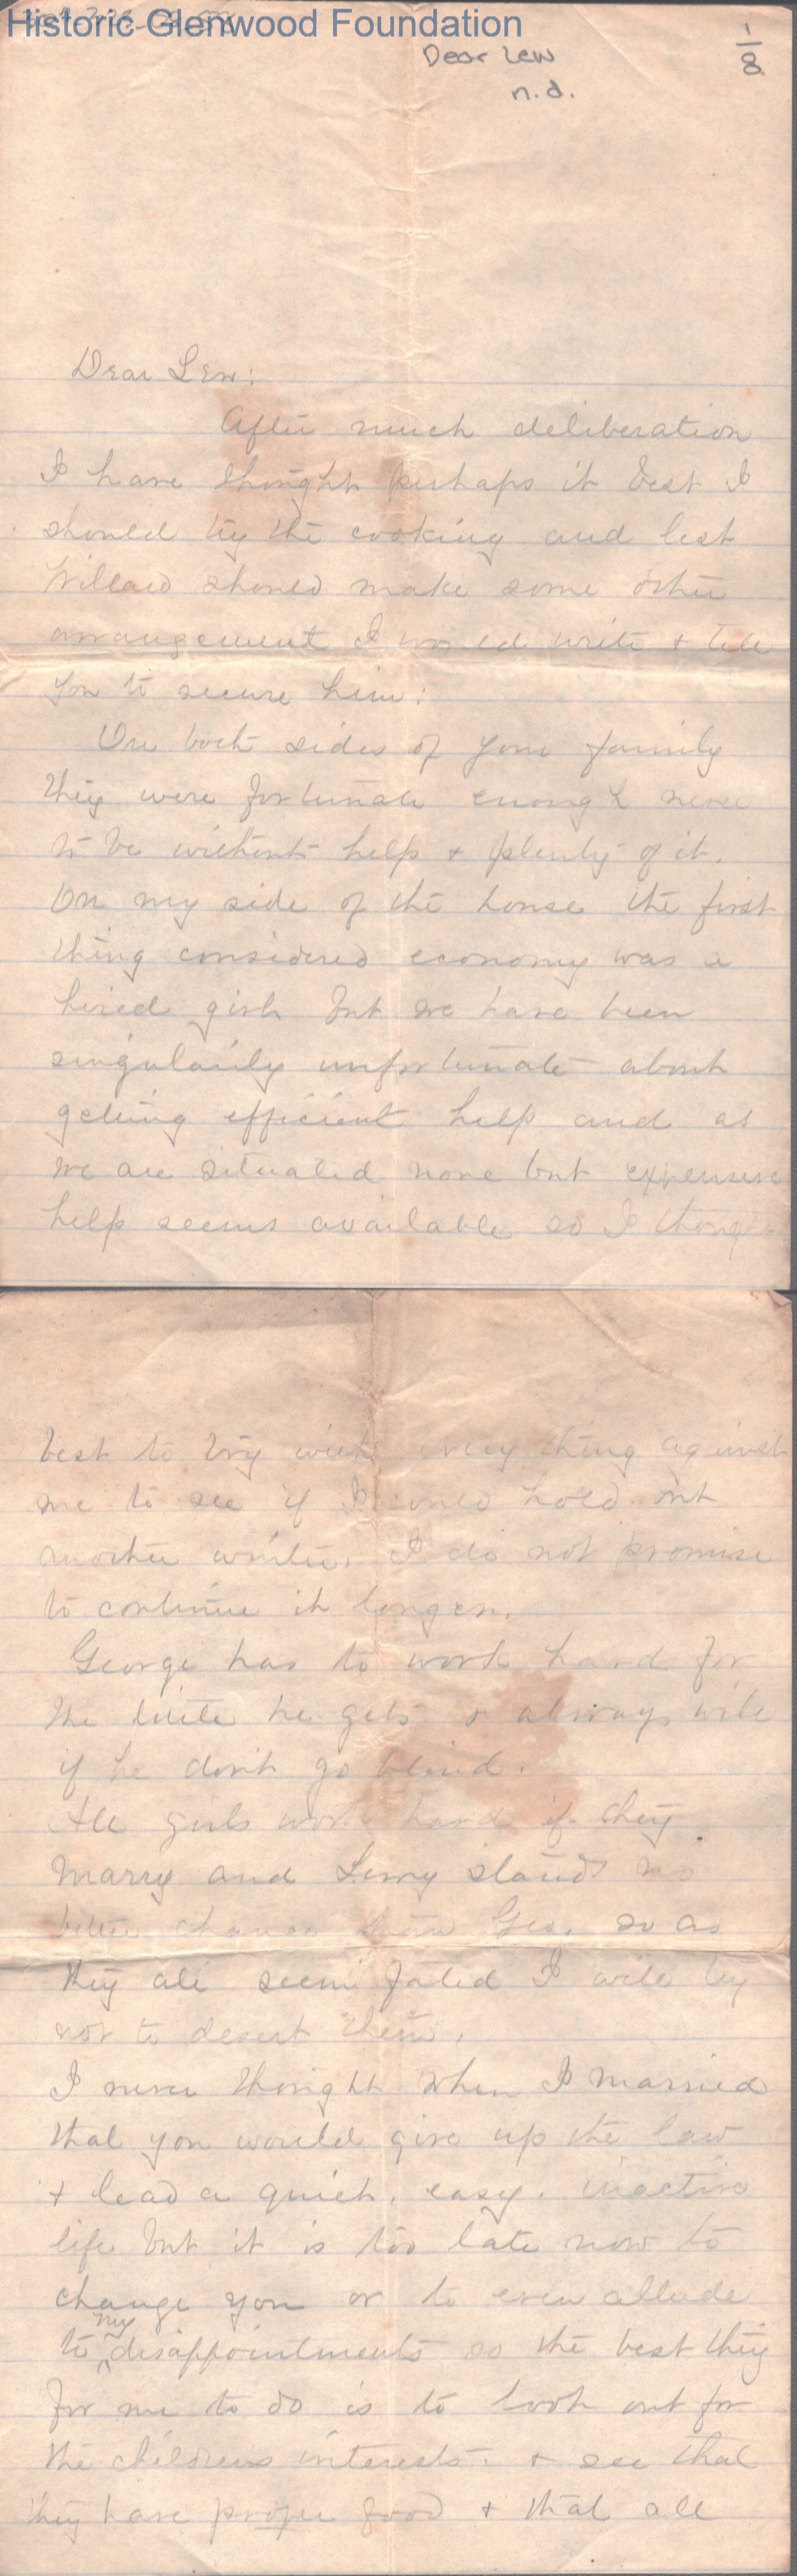 Historic Glenwood Foundation
Dear Lew
n.d.
1/8
Dear Lew:
After much deliberation
I have thought perhaps it best I
should try the cooking and lest
Willard should make some other
arrangement I would write & tell
you to secure him:
On both sides of your family
they were fortunate enough never
to be without help & plenty of it.
On my side of the house the first
thing considered economy was a
hired girl but we have been
singularily unfortunate about
getting efficient help and as
we are situated none but expensive
help seems available so I thought
best to try with every thing against
me to see if I could hold out
another winter. I do not promise
to continue it longer.
George has to work hard for
the little he gets & always will
if he don't go blind.
All girls work hard if they
marry and stands no
better chance than Geo. so as
they all seem fated I will try
not to desert them.
I never thought when I married
that you would give up the law
& lead a quiet, easy, inactive
life but it is too late now to
change you or to even allude
to my disappointments so the best thing
for me to do is to look out for
the childrens interests. & see that
they have proper food & that all